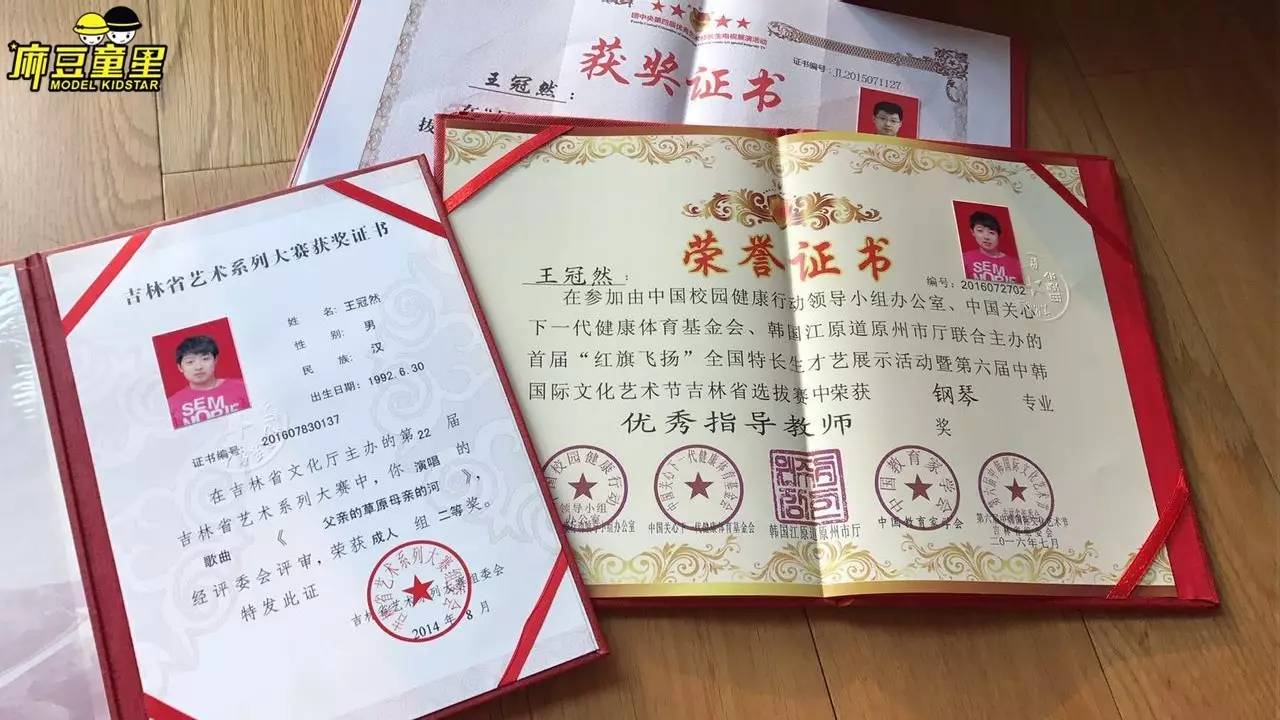 麻豆童里
MODEL KIDSTAR
获奖证书
证书编号：JL2015071127
王冠然：
吉林省艺术系列大赛获奖证书
姓 名：王冠然
性 别：男
民 族：汉
出生日期：1992.6.30
证书编号：201607830137
在吉林省文化厅主办的第22届
吉林省艺术系列大赛中，你 演唱 的
歌曲《 父亲的草原母亲的河 》，
经评委会评审，荣获 成人 组 二等 奖。
特发此证
2014 年 8 月
荣誉证书
王冠然：
编号：2016072702
在参加由中国校园健康行动领导小组办公室、中国关心
下一代健康体育基金会、韩国江原道原州市厅联合主办的
首届“红旗飞扬”全国特长生才艺展示活动暨第六届中韩
国际文化艺术节吉林省选拔赛中荣获 钢琴 专业
优秀指导教师 奖
中国关心下一代健康体育基金会
韩国江原道原州市厅
中国教育家学会
二〇一六年七月